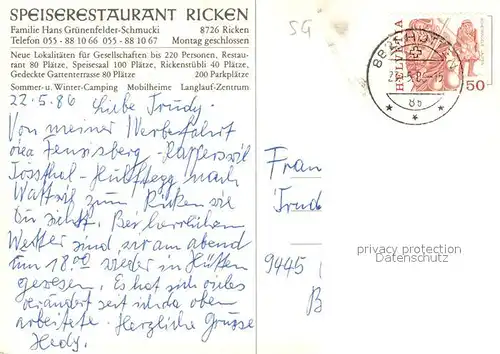 SPEISERESTAURANT RICKEN
Familie Hans Grünenfelder-Schmucki 8726 Ricken
Telefon 055 - 88 10 66 055 - 88 10 67 Montag geschlossen
Neue Lokalitäten für Gesellschaften bis 220 Personen, Restau-
rant 80 Plätze, Speisesaal 100 Plätze, Rickenstübli 40 Plätze,
Gedeckte Gartenterrasse 80 Plätze 200 Parkplätze
Sommer- u. Winter-Camping Mobilheime Langlauf-Zentrum
22.5.86 Liebe Trudy.
Von meiner Werbefahrt
via Feusisberg - Rapperswil
Tössthal - Hulftegg nach
Wattwil zum Ricken wie
Du siehst. Bei herrlichem
Wetter sind wir am abend
um 18.00 wieder in Hütten
gewesen. Es hat sich vieles
verändert seit ich da oben
arbeitete. Herzliche Grüsse
Hedy.
SG
HELVETIA
50
86
Frau
Trud
9445
privacy protection
Datenschutz